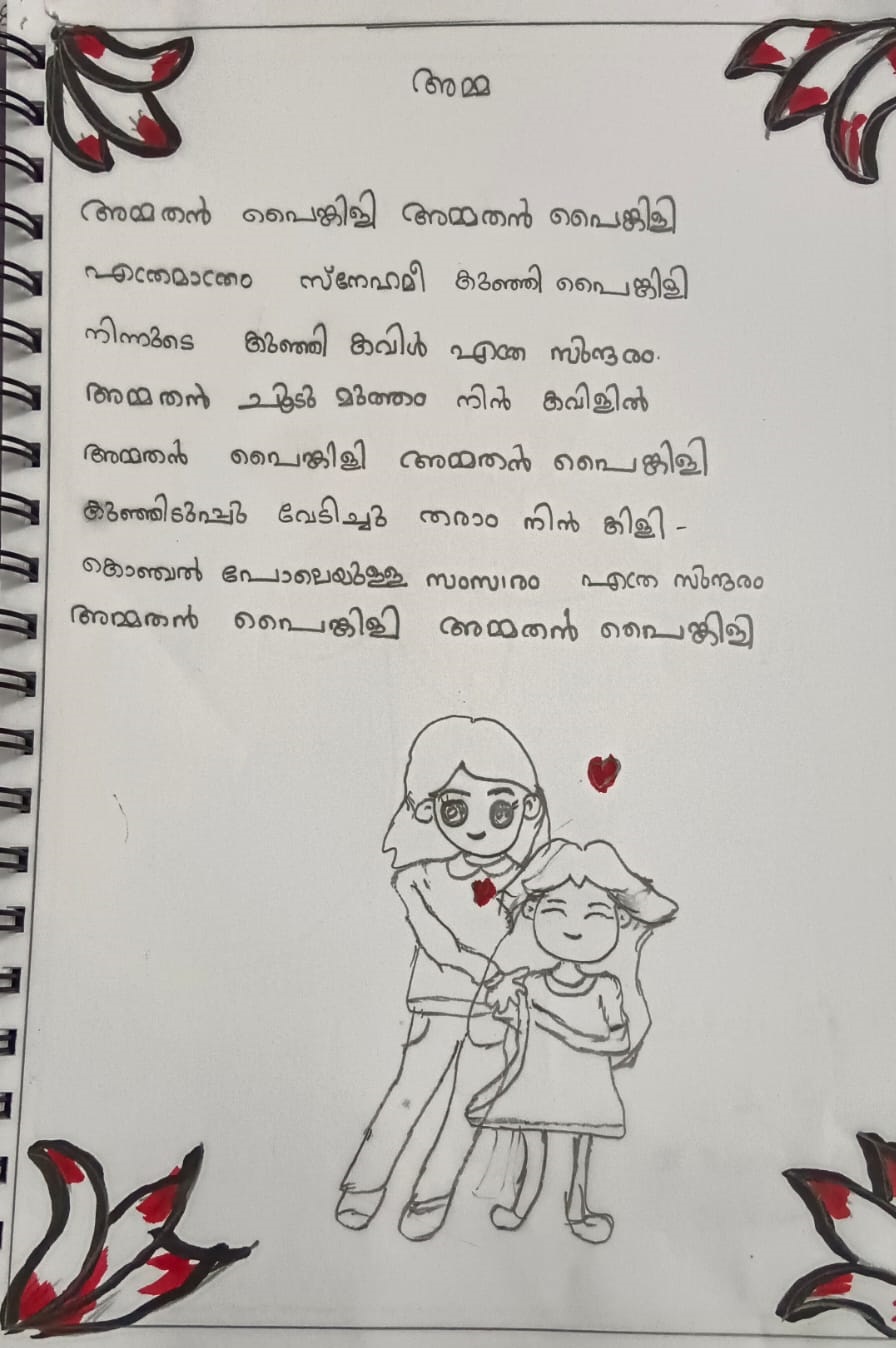 അമ്മ
അമ്മതൻ പൈങ്കിളി അമ്മതൻ പൈങ്കിളി
എന്തേമാന്തോ സ്നേഹമീ കുഞ്ഞി പൈങ്കിളി
നിന്നുടെ കുഞ്ഞി കവിൾ എന്തേ സുന്ദരം.
അമ്മതൻ ചൂടു മുത്തം നിൻ കവിളിൽ
അമ്മതൻ പൈങ്കിളി അമ്മതൻ പൈങ്കിളി
കുഞ്ഞിടുപ്പു വേടിച്ചു തരാം നിൻ കിളി -
കൊഞ്ചൽ പോലെയുള്ള സംസാരം എന്തേ സുന്ദരം
അമ്മതൻ പൈങ്കിളി അമ്മതൻ പൈങ്കിളി